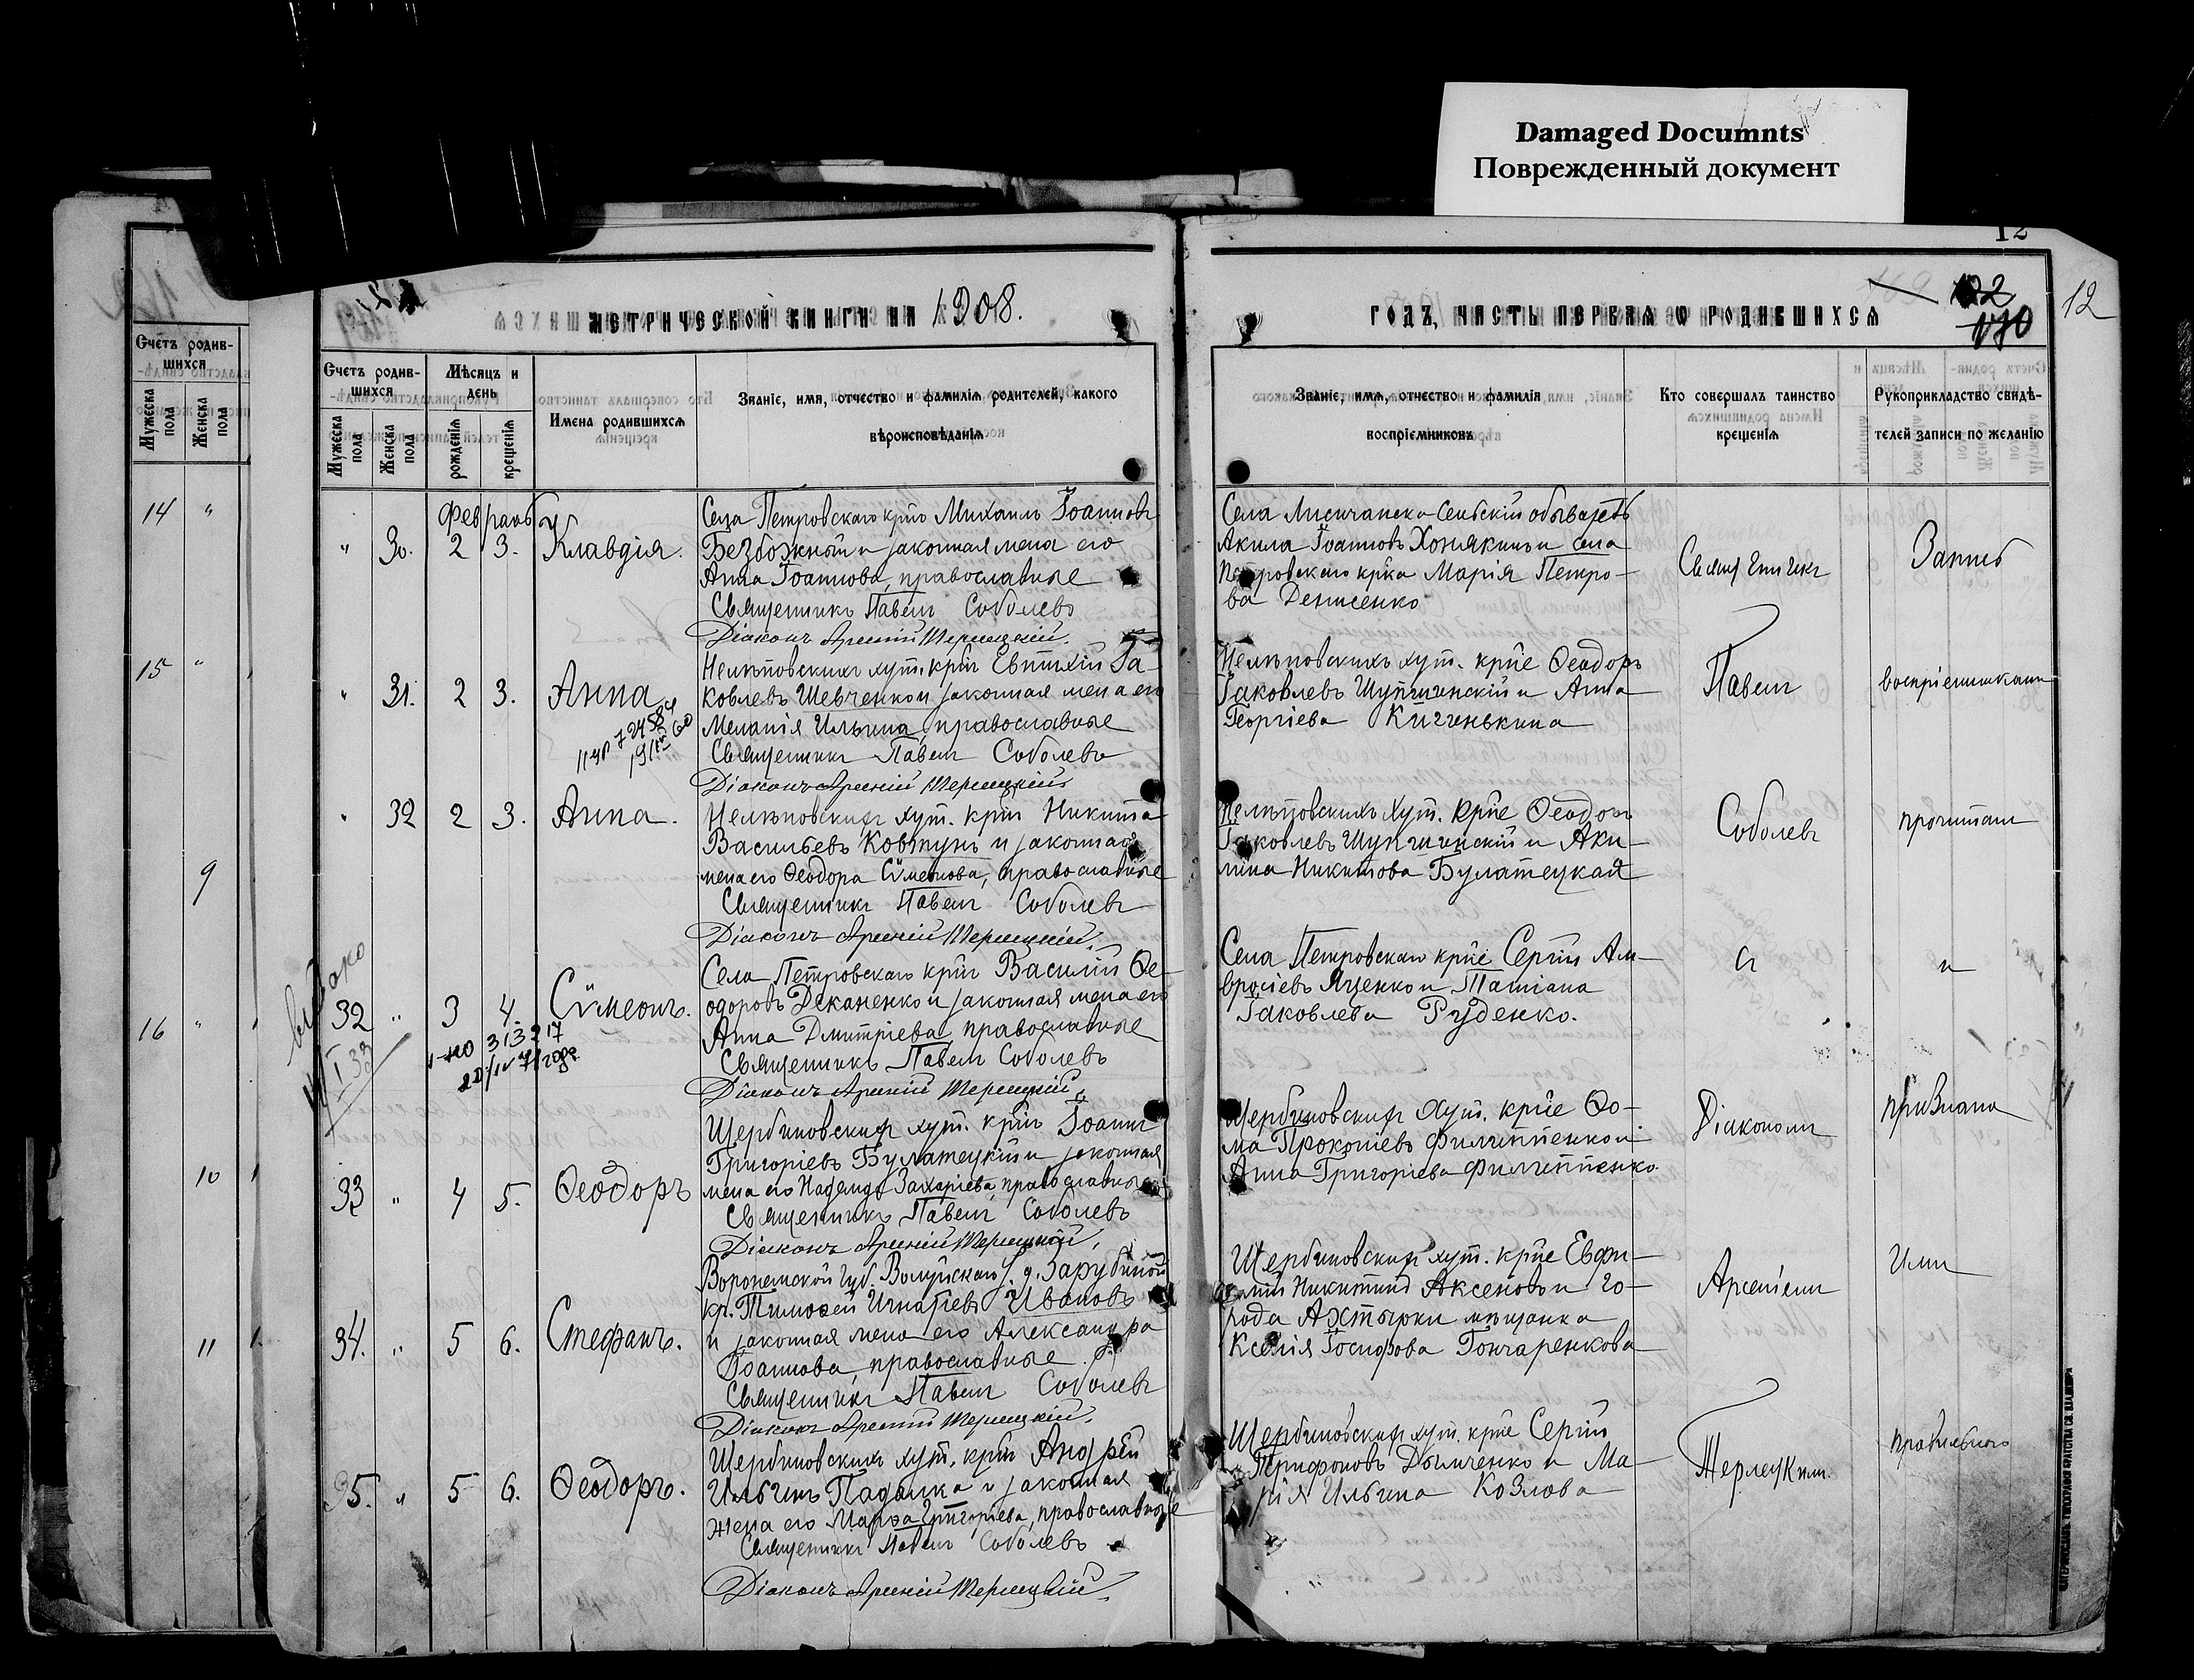 Damaged Documnts
Поврежденный документ
12
МЕТРИЧЕСКОЙ КНИГИ НА 1908.
ГОДЪ, ЧАСТЬ ПЕРВАЯ О РОДИВШИХСЯ
122
170
12
Счетъ родив-
шихся
Мужеска пола
Женска пола
14 "
15 "
9
16 "
10
11
Счетъ родив-
шихся
Мѣсяцъ и
день
Мужеска пола
Женска пола
рожденія
крещенія
Имена родившихся
Званіе, имя, отчество и фамилія родителей, какого
вѣроисповѣданія
Званіе, имя, отчество и фамилія
воспріемниковъ
Кто совершалъ таинство
крещенія
Рукоприкладство свидѣ-
телей записи по желанію
Февраль
" 30. 2 3. Клавдія.
Села Петровскаго кр͞нъ Михаилъ Іоанновъ
Безбожный и законная жена его
Анна Іоаннова, православные
Священникъ Павелъ Соболевъ
Діаконъ Арсеній Терлецкій.
Села Лисичанска Сельскій обыватель
Акила Іоанновъ Хомякинъ и села
Петровскаго кр͞ка Марія Петро-
ва Денисенко
" 31. 2 3. Анна
Нелѣповскихъ хут. кр͞нъ Евтихій Іа-
ковлевъ Шевченко и законная жена его
Меланія Ильина, православные
Священникъ Павелъ Соболевъ
Діаконъ Арсеній Терлецкій
Нелѣповскихъ хут. кр͞не Ѳеодоръ
Іаковлевъ Шупичинскій и Анна
Георгіева Кигинькина
" 32 2 3. Анна.
Нелѣповскихъ хут. кр͞нъ Никита
Васильевъ Ковтунъ и законная
жена его Ѳеодора Сѵмеонова, православные
Священникъ Павелъ Соболевъ
Діаконъ Арсеній Терлецкій.
Нелѣповскихъ хут. кр͞не Ѳеодоръ
Іаковлевъ Шупичинскій и Аки-
лина Никитова Булатецкая
выдано
32 " 3 4. Сѵмеонъ.
313217
Села Петровскаго кр͞нъ Василій Ѳе-
одоровъ Деканенко и законная жена его
Анна Дмитріева, православные
Священникъ Павелъ Соболевъ
Діаконъ Арсеній Терлецкій.
Села Петровскаго кр͞не Сергій Ам-
вросіевъ Яценко и Татіана
Іаковлева Руденко.
33 " 4 5. Ѳеодоръ
Щербиновскихъ хут. кр͞нъ Іоаннъ
Григоріевъ Булатецкій и законная
жена его Надежда Захаріева, православные
Священникъ Павелъ Соболевъ
Діаконъ Арсеній Терлецкій.
Щербиновскихъ хут. кр͞не Ѳо-
ма Прокопіевъ Филиппенко и
Анна Григоріева Филиппенко.
34. " 5 6. Стефанъ.
Воронежской губ. Волуйскаго у. д. Зарубиной
кр. Тимоѳей Игнатіевъ Ивановъ
и законная жена его Александра
Іоаннова, православные.
Священникъ Павелъ Соболевъ
Діаконъ Арсеній Терлецкій.
Щербиновскихъ хут. кр͞не Евфи-
мій Никитинъ Аксеновъ и го-
рода Ахтырки мѣщанка
Ксенія Іосифова Гончаренкова
35. " 5 6. Ѳеодоръ.
Щербиновскихъ хут. кр͞нъ Андрей
Ильинъ Падалка и законная
жена его Марѳа Григоріева, православные
Священникъ Павелъ Соболевъ
Діаконъ Арсеній Терлецкій.
Щербиновскихъ хут. кр͞не Сергій
Трифоновъ Дымченко и Ма-
рія Ильина Козлова
Священникъ
Павелъ
Соболевъ
съ
Діакономъ
Арсеніемъ
Терлецкимъ.
Запись
воспріемниками
прочитана
и
признана
Ими
правильною